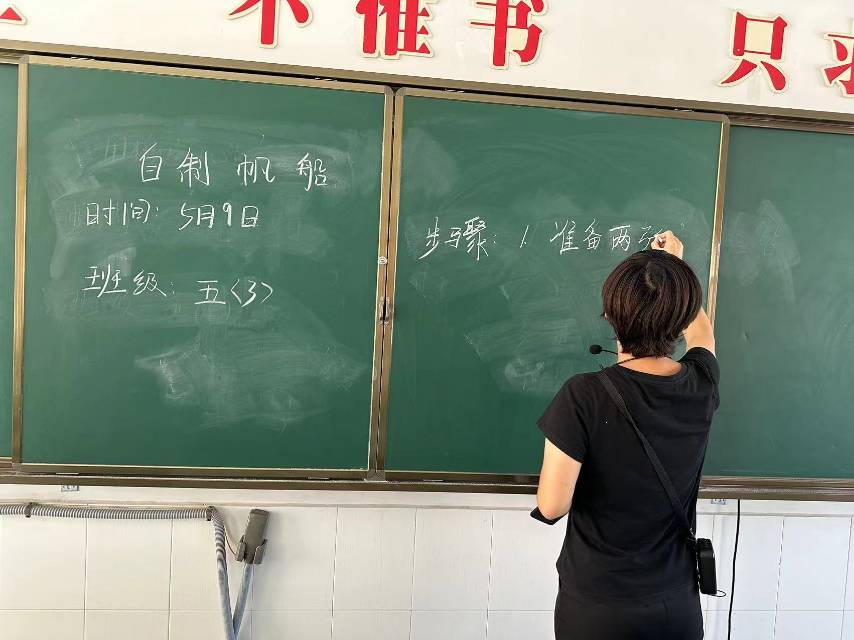 不惟书
只求
自制帆船
时间：5月9日
班级：五〈3〉
步骤：1. 准备两张